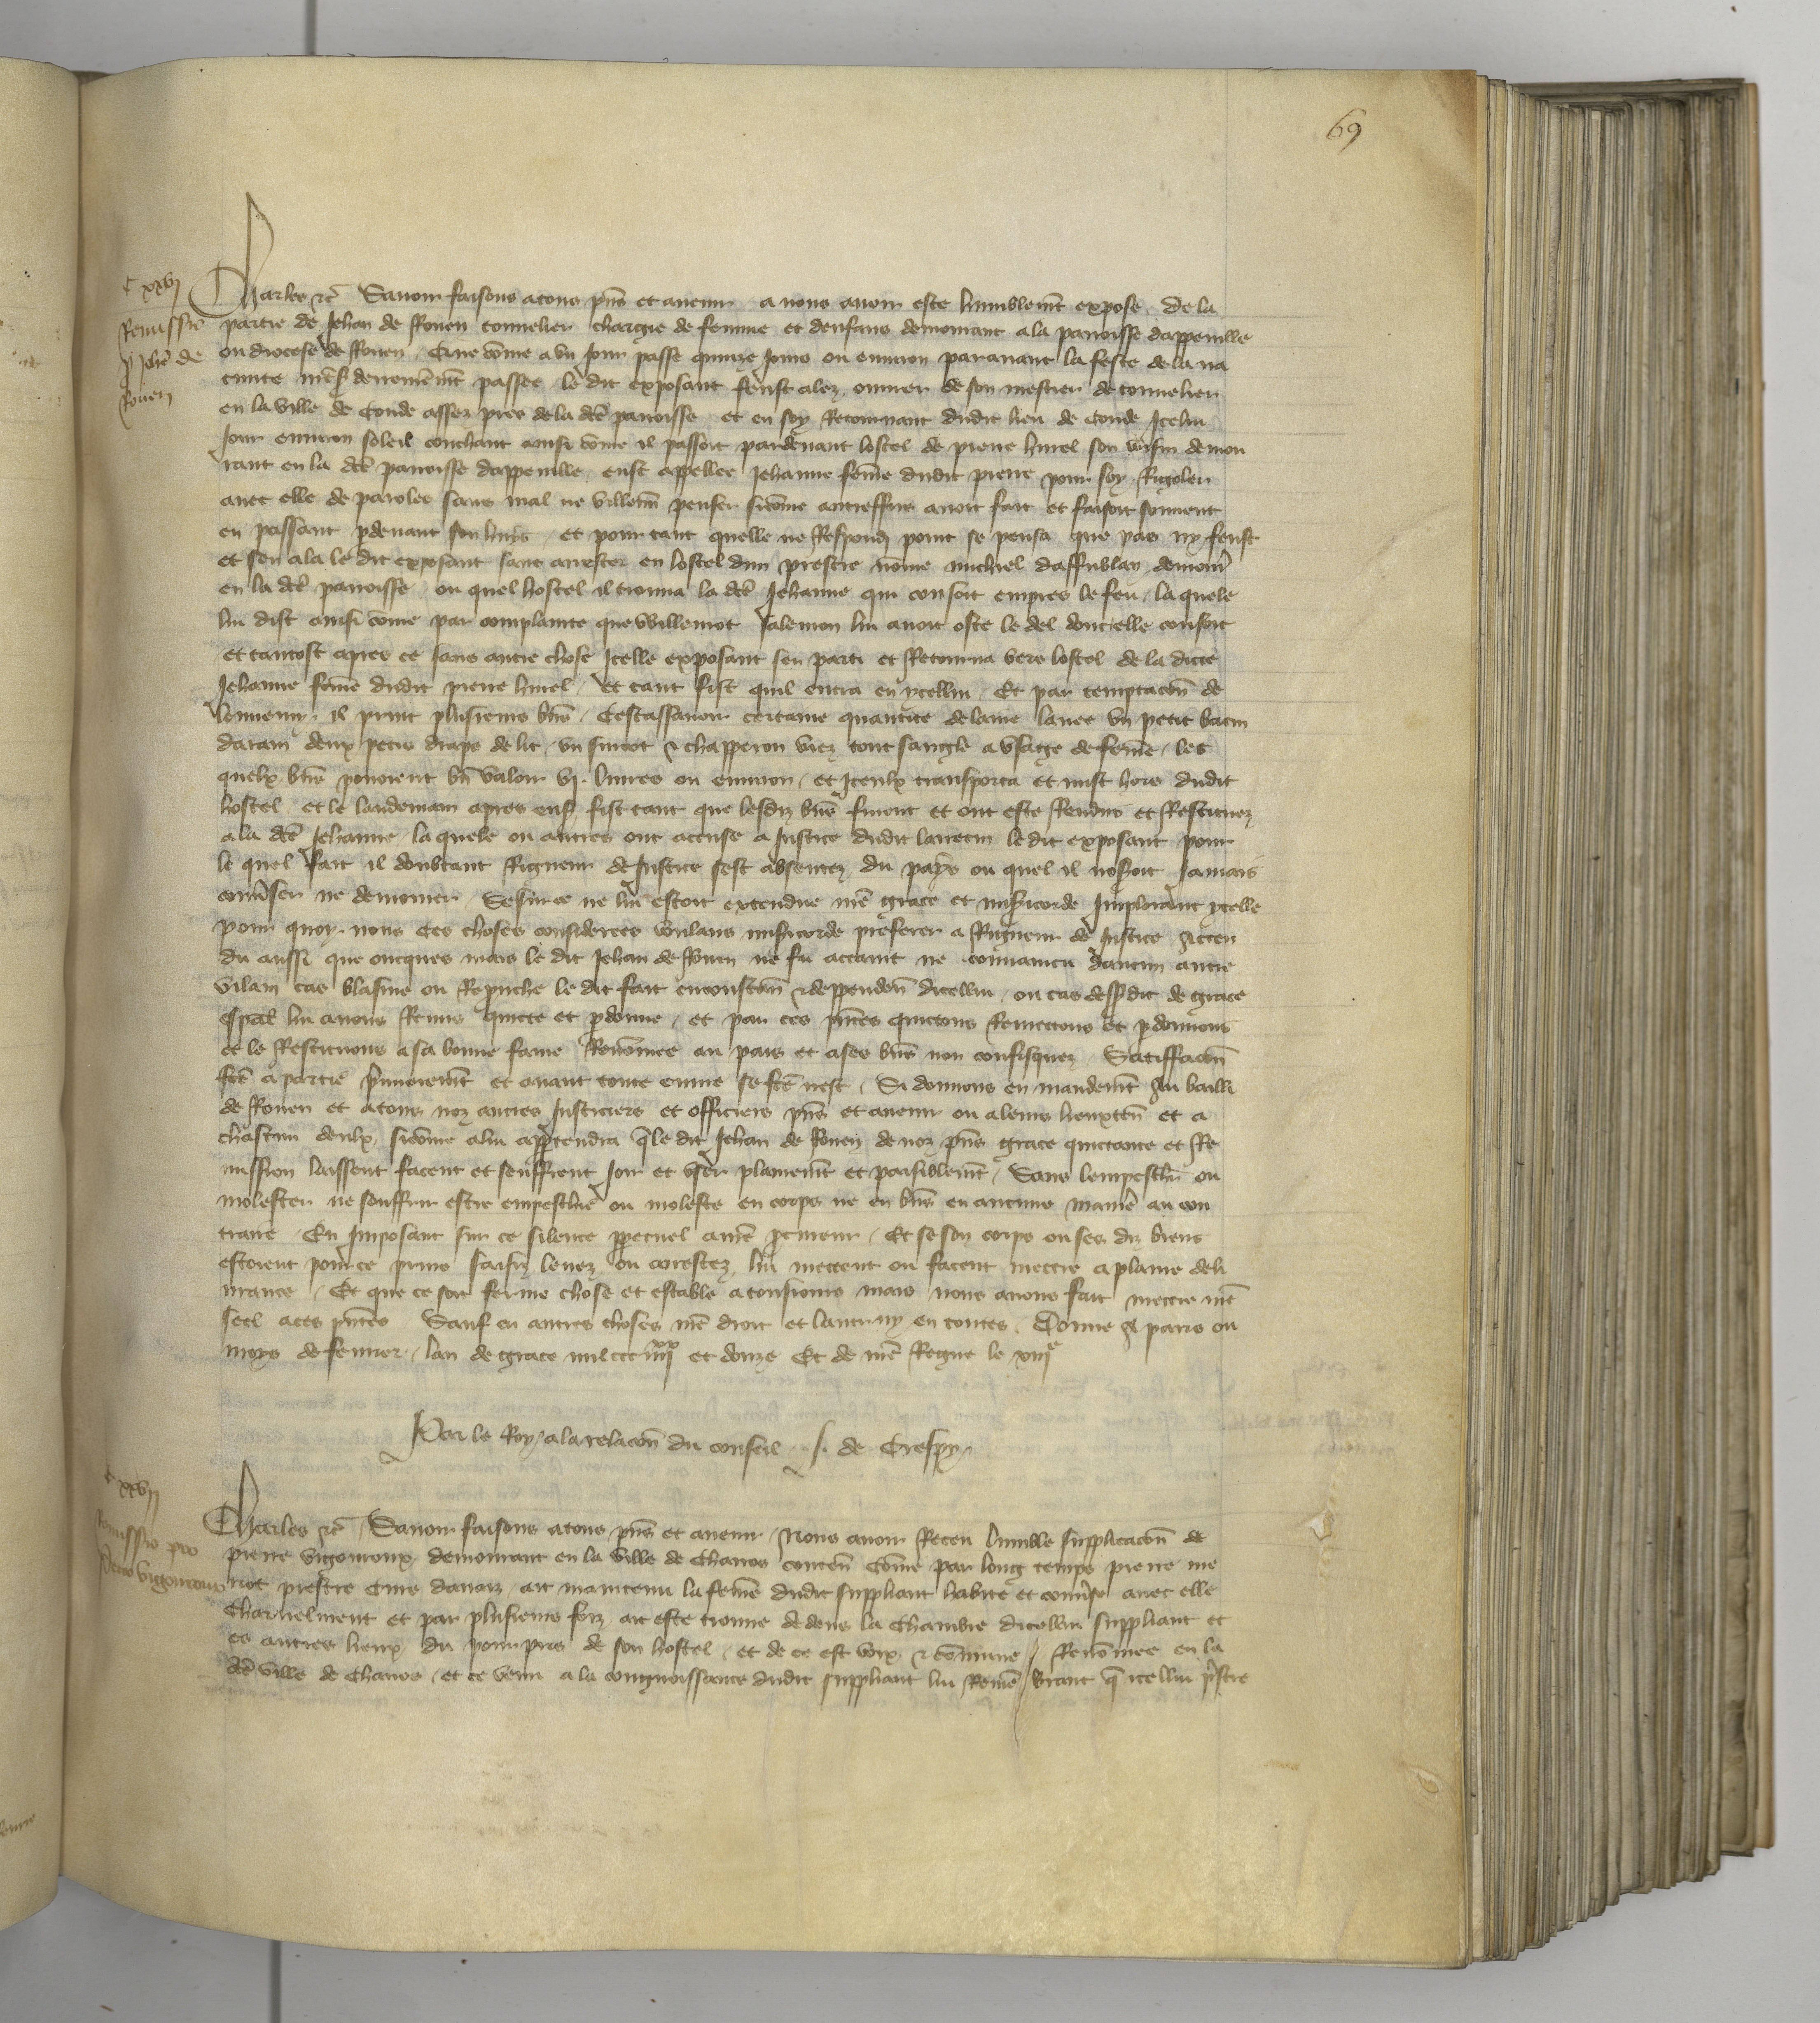 69
C xxvi
Remissio
p Jehe de
Rouen
Charles etc Savoir faisons a tous pns et avenir a nous avoir este humblemt expose de la
partie de Jehan de Rouen tonnelier chargie de femme et denfans demourant a la parroisse dappeville
ou diocese de Rouen Que come a un Jour passe quinze Jours ou environ paravant la feste de la na
tivite nre s derrenieremt passee le dit exposant feust alez ouvrer de son mestier de tonnelier
en la ville de Conde assez pres de la dce parroisse et en soy Retournant dudit lieu de Conde Icelui
Jour environ soleil couchant ainsi come il passoit pardevant lostel de pierre hurel son voisin demou
rant en la dce parroisse dappeville eust appellee Jehanne feme dudit pierre pour soy Rigoler
avec elle de paroles sans mal ne villenn penser sicome autreffois avoit fait et faisoit souvent
en passant pdevant son huys et pour tant quelle ne Respondi point se pensa que pas ny feust
et sen ala le dit exposant sans arrester en lostel dun prestre nome michiel daffublay demour
en la dce parroisse ou quel hostel il trouva la dce Jehanne qui cousoit empres le feu la quele
lui dist ainsi come par complainte que Willemot Jalemon lui avoit oste le del dont elle cousoit
et tantost apres ce sans autre chose Icelle exposant sen parti et Retourna vers lostel de la dicte
Jehanne feme dudit pierre hurel et tant fist quil entra en ycellui Et par temptacon de
lennemy il print plusieurs bns Cestassavoir certaine quantite de laine lavee un petit bacin
darain deux petis draps de lit un surcot & chapperon viez tout sangle a usaige de feme les
quelx bns povoient bn valoir vi livres ou environ et Iceulx transporta et mist hors dudit
hostel et le landemain apres ens fist tant que lesdiz bns furent et ont este Rendus et Restituez
a la dce Jehanne la quele ou autres ont accuse a Justice dudit larrecin le dit exposant pour
le quel fait il doubtant Rigueur de Justice sest absentez du pays ou quel il noseroit Jamais
converser ne demourer Se sur ce ne lui estoit extendue nre grace et misericorde Implorant ycelle
pour quoy nous ces choses considerees voulans misericorde preferer a Rigueur de Justice atten
du aussi que oncques mais le dit Jehan de Rouen ne fu attaint ne convaincu daucun autre
vilain cas blasme ou Reprouche le dit fait circonstan & deppenden dicellui ou cas dessudit de grace
espal lui avons Remis quicte et pdonne et par ces pntes quictons Remectons et pdonnons
et le Restituons a sa bonne fame Renomee au pais et a ses bns non confisquez Satiffacon
fce a partie pmieremt et avant toute euvre se fce nest Si donnons en mandemt au bailli
de Rouen et a tous noz autres Justiciers et officiers pns et avenir ou a leurs lieuxten et a
chascun deulx sicome a lui appartendra q le dit Jehan de Rouen de noz pns grace quictance et Re
mission laissent facent et seuffrent Joir et user plainemt et paisiblemt Sans lempeschr ou
molester ne souffrir estre empeschie ou moleste en corps ne en bns en aucune manie au con
traire En Imposant sur ce silence ppetuel a nre pcureur Et se son corps ou ses diz biens
estoient pour ce prins saisiz levez ou arrestez lui mectent ou facent mectre a plaine deli
vrance Et que ce soit ferme chose et estable a tousiours mais nous avons fait mectre nre
seel a ces pntes Sauf en autres choses nre droit et lautruy en toutes Donne a paris ou
moys de fevrier lan de grace mil ccc iiiixx et douze Et de nre Regne le xiiie
Par le Roy a la relacon du conseil J. de Crespy
C xxvii
Remissio pro
Petro Vigouroux
Charles etc Savoir faisons a tous pns et avenir Nous avoir Receu humble supplicacon de
pierre vigouroux demourant en la ville de Chanos conten Come par long temps pierre me
not prestre cure davaiz ait maintenu la feme dudit suppliant habite et converse avec elle
charnelment et par plusieurs foiz ait este trouve dedens la chambre dicellui suppliant et
es autres lieux du pourpris de son hostel et de ce est voix & comune Renomee en la
dce ville de Chanos et ce venu a la congnoissance dudit suppliant lui Reme brant q icellui pstre